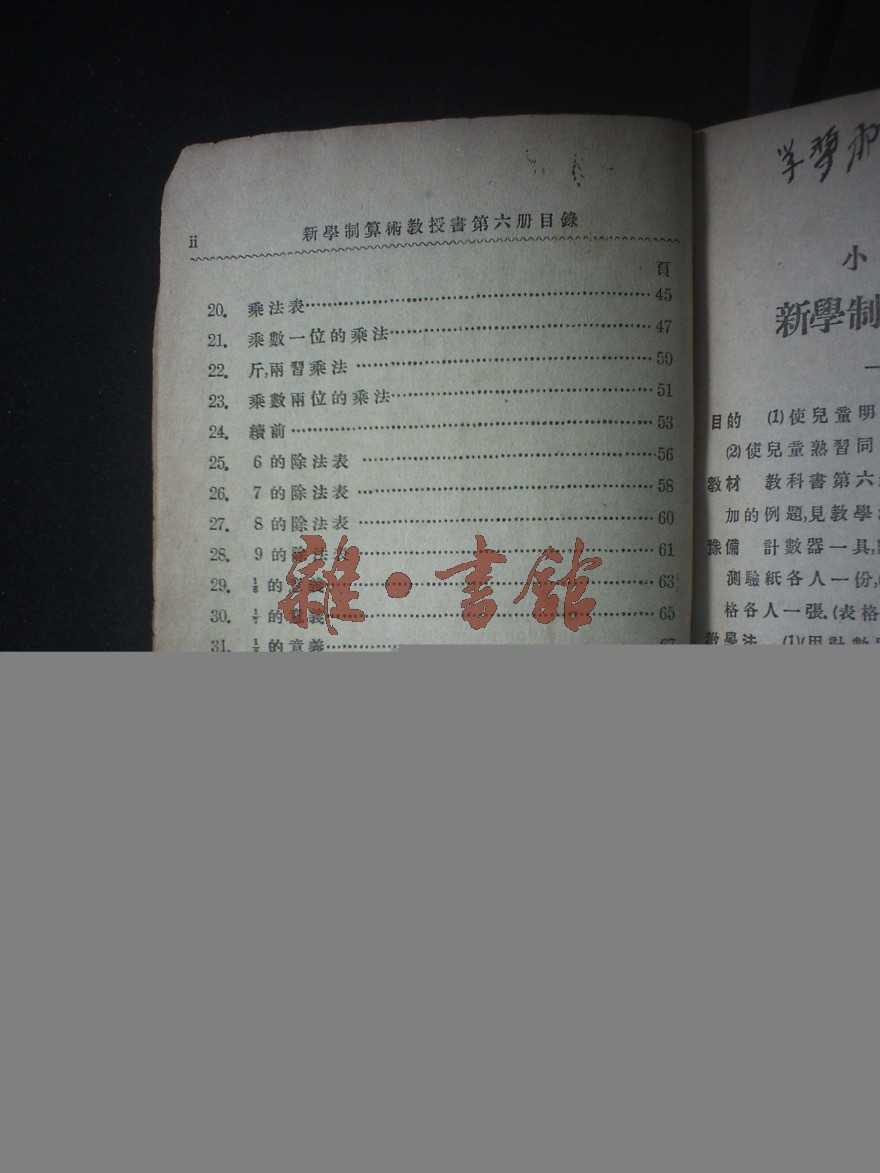 ii
新學制算術教授書第六册目錄
頁
20. 乘法表 45
21. 乘數一位的乘法 47
22. 斤,兩習乘法 50
23. 乘數兩位的乘法 51
24. 續前 53
25. 6的除法表 56
26. 7的除法表 58
27. 8的除法表 60
28. 9的除法表 61
29. 的意義 63
30. 的意義 65
31. 的意義 67
雜·書館
学習
小
新學制
目的 (1)使兒童明
(2)使兒童熟習同
教材 教科書第六
加的例題,見教學
豫備 計數器一具,
測驗紙各人一份,
格各人一張.(表格
教學法 (1)(用計數